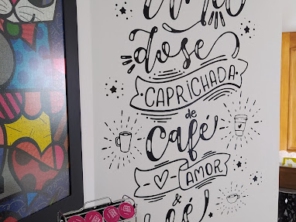 dose
CAPRICHADA
de
café
AMOR
&